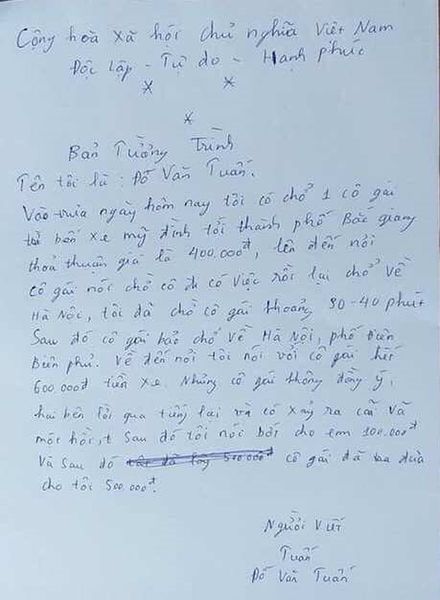 Cộng hoà xã hội chủ nghĩa Việt Nam
Độc lập - Tự do - Hạnh phúc
Bản Tường Trình
Tên tôi là : Đỗ Văn Tuấn.
Vào trưa ngày hôm nay tôi có chở 1 cô gái
từ bến xe mỹ đình tới thành phố Bắc giang
thoả thuận giá là 400.000đ, lên đến nơi
cô gái nói chờ cô đi có việc rồi lại chở về
Hà Nội, tôi đã chờ cô gái khoảng 30-40 phút
Sau đó cô gái bảo chở về Hà Nội, phố Điện
Biên phủ. Về đến nơi tôi nói với cô gái hết
600.000đ tiền xe. Nhưng cô gái không đồng ý,
hai bên lời qua tiếng lại và có xảy ra cãi vã
một hồi, Sau đó tôi nói bớt cho em 100.000đ
Và sau đó cô gái đã đưa
cho tôi 500.000đ.
Người Viết
Tuấn
Đỗ Văn Tuấn